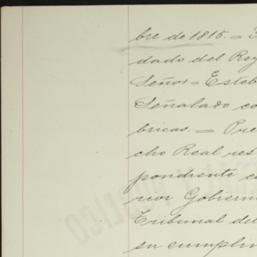 bre de 1815. =
dado del Rey
Señor = Esteb
Señalado co
bricas. = Pre
cho Real res
pondiente co
rior Gobierno
Tribunal del
su cumplim